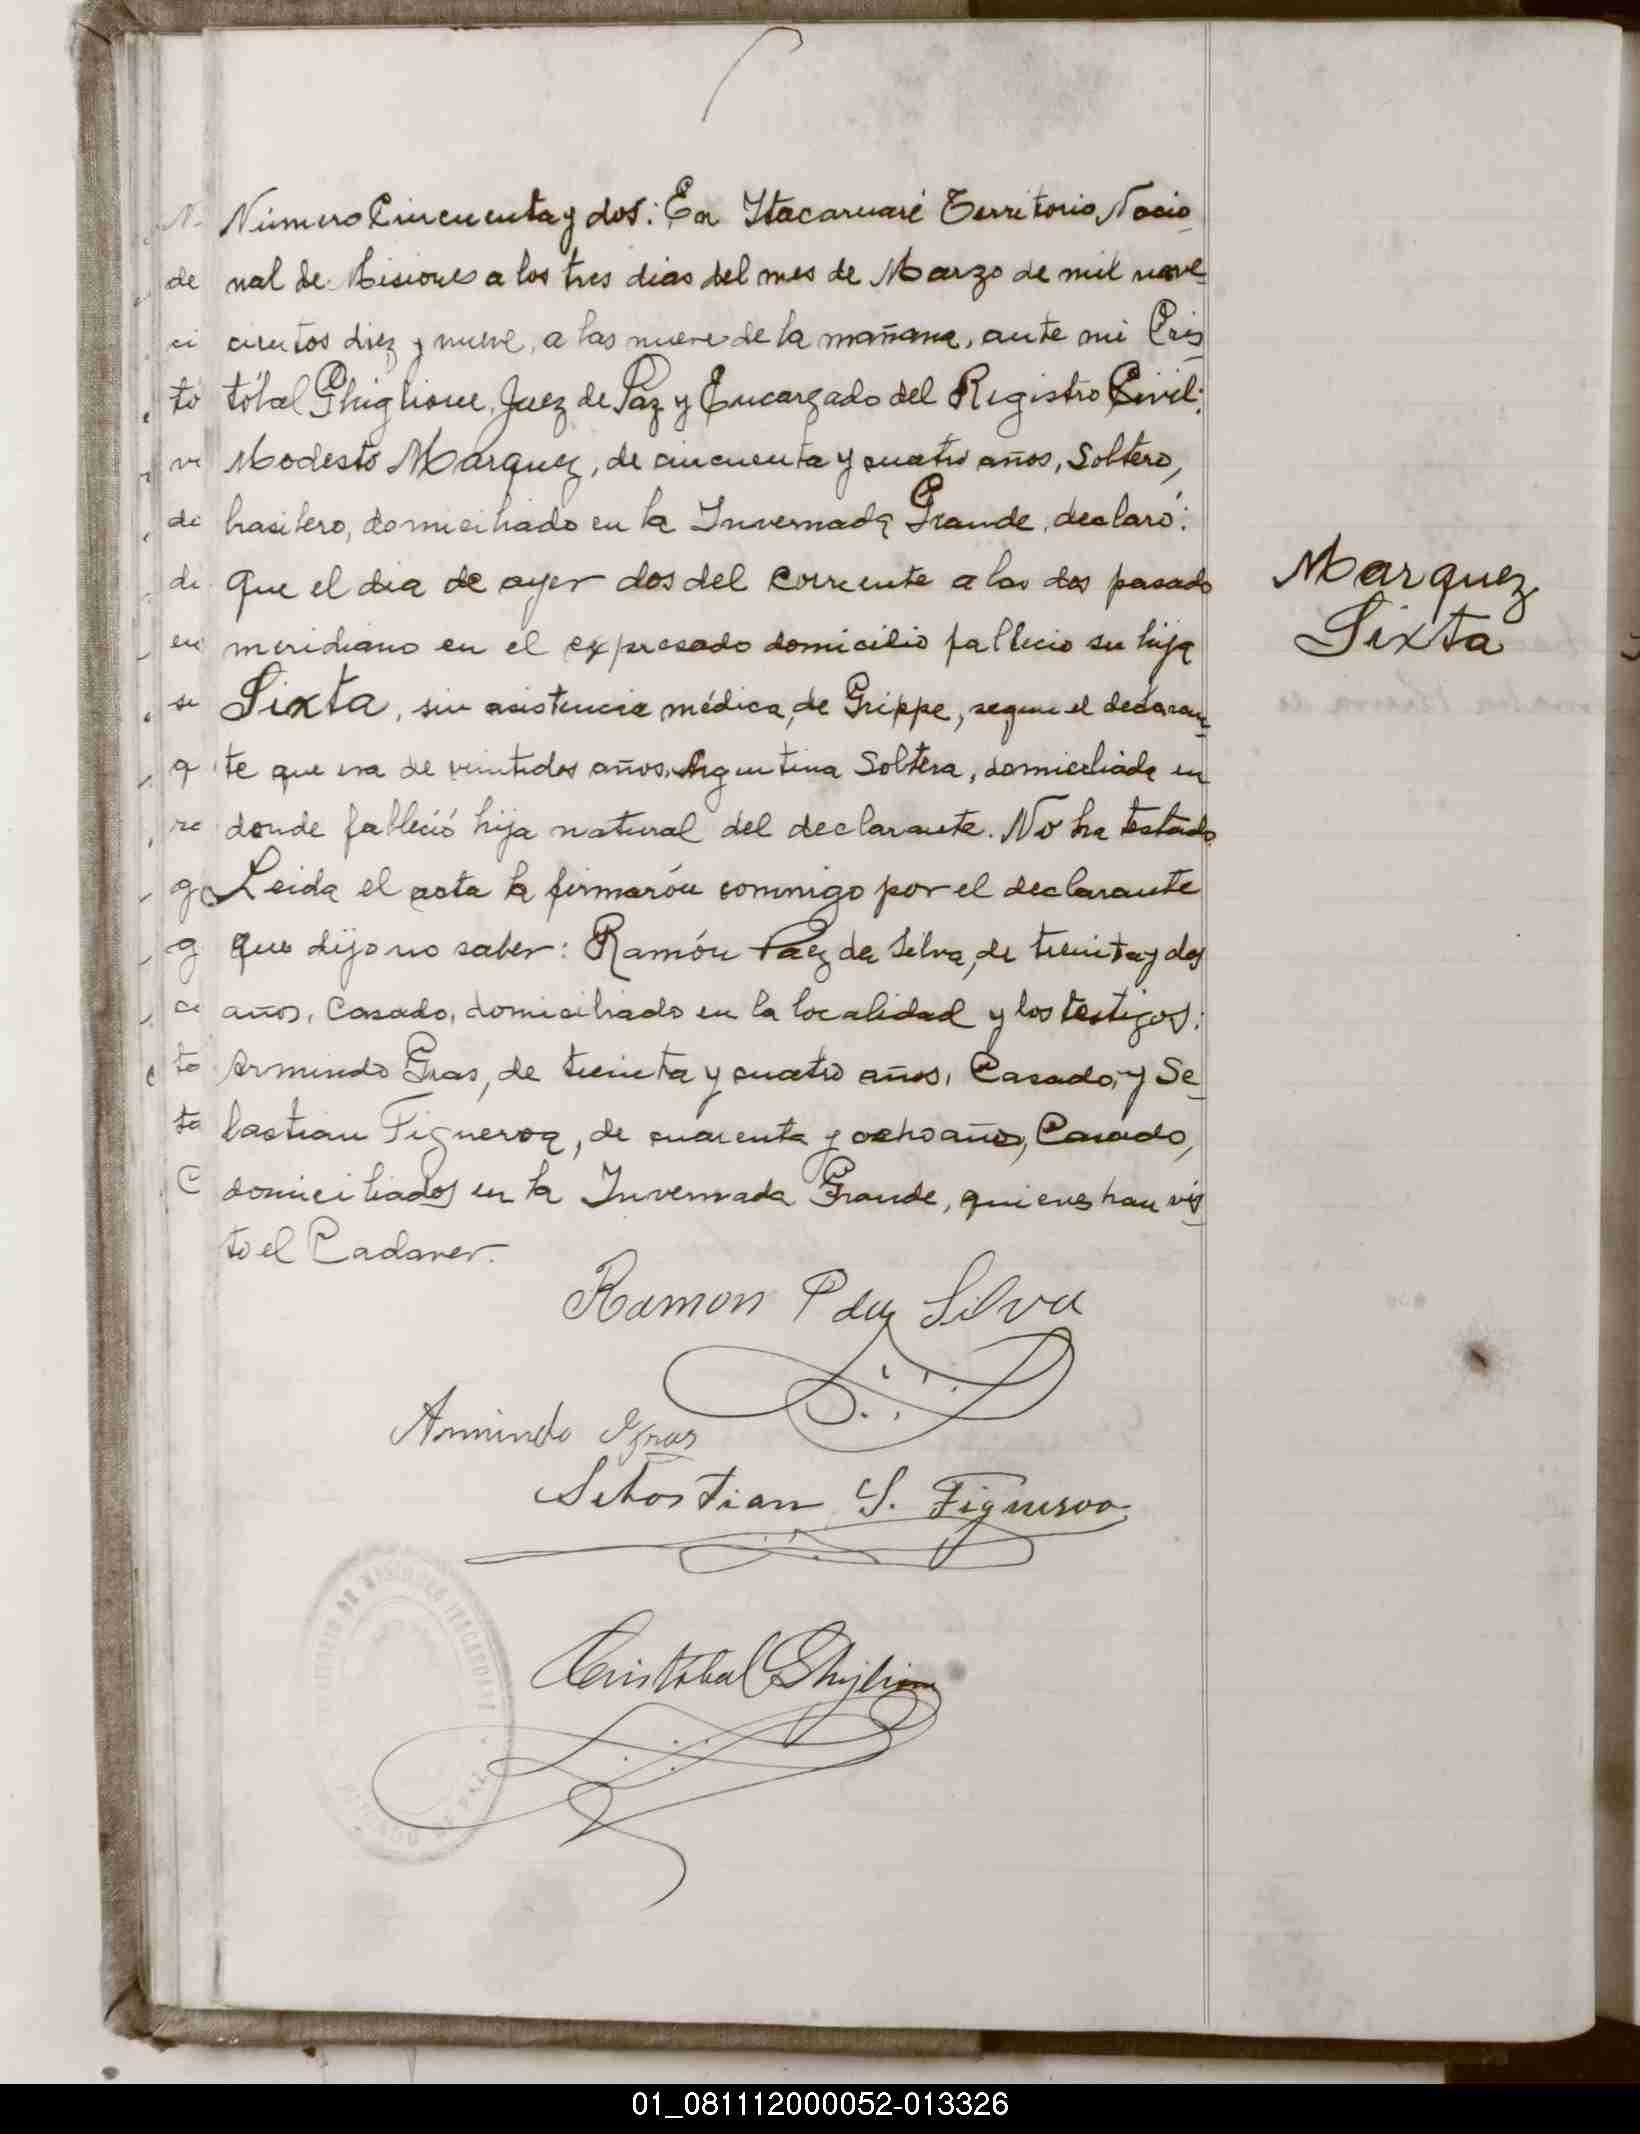 Número Cincuenta y dos: En Itacaruaré Territorio Nacio_
nal de Misiones a los tres dias del mes de Marzo de mil nove_
cientos diez y nueve, a las nueve de la mañana, ante mi Cris_
tóbal Ghiglione, Juez de Paz y Encargado del Registro Civil:
Modesto Marquez, de cincuenta y cuatro años, Soltero,
brasilero, domiciliado en la Invernada Grande, declaró:
que el dia de ayer dos del corriente a las dos pasado
meridiano en el expresado domicilio fallecio su hija
Marquez
Sixta
Sixta, sin asistencia médica, de Grippe, segun el declaran_
te que era de veintidos años, Argentina Soltera, domiciliada en
donde falleció hija natural del declarante. No ha testado
Leida el acta la firmarón conmigo por el declarante
que dijo no saber: Ramón Paez da Silva, de treinta y dos
años, Casado, domiciliado en la localidad y los testigos:
Armindo Gras, de treinta y cuatro años, Casado, y Se_
bastian Figueroa, de cuarenta y ocho años, Casado,
domiciliados en la Invernada Grande, quienes han vis_
to el Cadaver.
Ramon Silva
Armindo Gras
Sebastian S. Figueroa
Cristobal Ghiglione
01_081112000052-013326